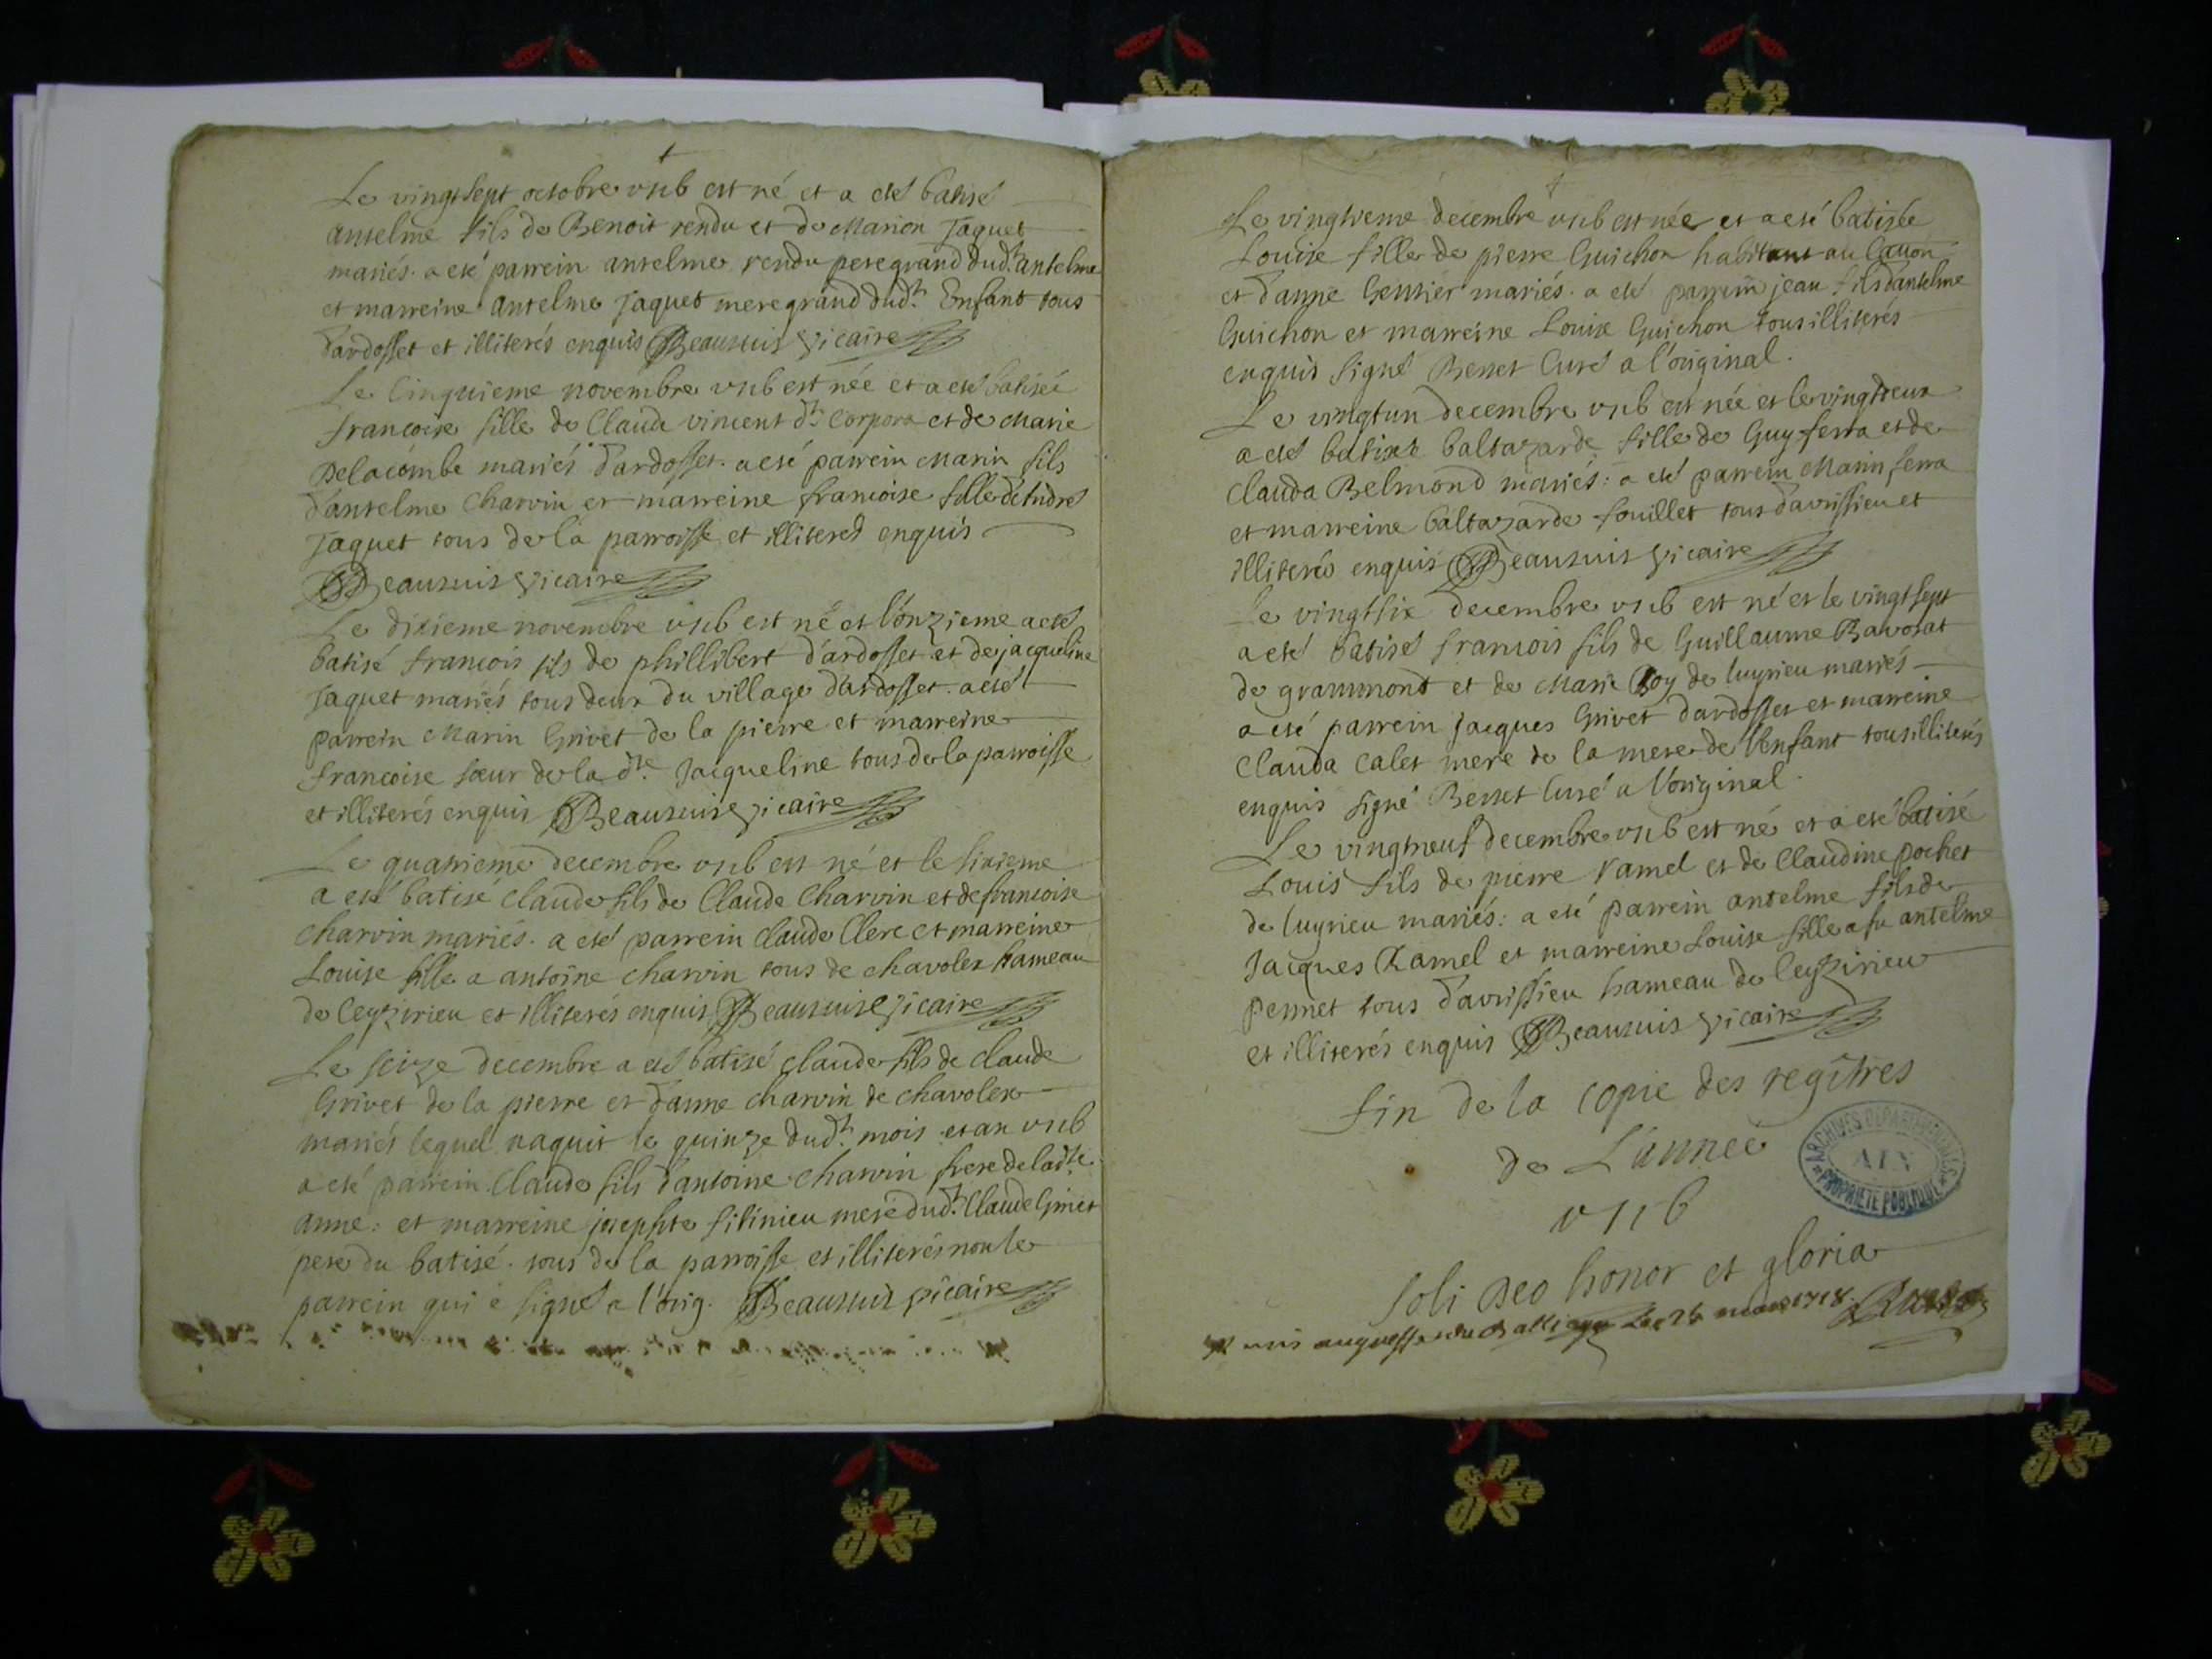 Le vingtsept octobre v11b est né et a eté batisé
antelme fils de Benoit rendu et de Marion Jaquet
mariés. a eté parrein antelme rendu peregrand dud.t antelme
et marreine antelme Jaquet meregrand dud.t Enfant tous
d'ardosset et illiterés enquis Beausuis vicaire
Le Cinquieme novembre v11b est née et a eté batisée
francoise fille de Claude vincent d.t Corpora et de Marie
Delacombe mariés d'ardosset. a eté parrein Marin fils
d'antelme Charvin et marreine francoise fille d'
Jaquet tous de la parroisse et illiterés enquis
Beausuis vicaire
Le dixieme novembre v11b est né et l'onzieme a eté
batisé francois fils de phillibert d'ardosset et de jacqueline
Jaquet mariés tous deux du village d'ardosset. a eté
parrein Marin Grivet de la pierre et marreine
francoise sœur de la d.te Jacqueline tous de la parroisse
et illiterés enquis Beausuis vicaire
Le quatrieme decembre v11b est né et le sixieme
a eté batisé Claude fils de Claude Charvin et de francoise
Charvin mariés. a eté parrein Claude Clerc et marreine
Louise fille a antoine charvin tous de chavolex hameau
de Ceyzirieu et illiterés enquis Beausuis vicaire
Le seize decembre a eté batisé claude fils de claude
Grivet de la pierre et d'anne charvin de chavolex
mariés lequel naquit le quinze dud.t mois et an v11b
a eté parrein Claude fils d'antoine charvin frere de lad.te
anne: et marreine josephte silinieu mere dud.t Claude Grivet
pere du batisé. tous de la parroisse et illiterés non le
parrein qui a signé a l'orig. Beausuis vicaire
Le vingtieme decembre v11b est née et a eté batisée
Louise fille de pierre Guichon habitant au Cauon
et d'anne Gentier mariés. a eté parrein jean fils d'antelme
Guichon et marreine Louise Guichon tous illiterés
enquis signé Besset Curé a l'original.
Le vingtun decembre v11b est née et le vingtdeux
a eté batisée baltazarde fille de Guy ferra et de
Clauda Belmond mariés: a eté parrein Marin ferra
et marreine baltazarde fouillet tous d'avrissieu et
illiterés enquis Beausuis vicaire
Le vingtsix decembre v11b est né et le vingtsept
a eté batisé francois fils de Guillaume Bavosat
de grammont et de Marie Roy de luyrieu mariés
a eté parrein Jacques Grivet d'ardosset et marreine
Clauda Calet mere de la mere de l'enfant tous illiterés
enquis signé Besset Curé a l'original.
Le vingtneuf decembre v11b est né et a eté batisé
Louis fils de pierre ramel et de Claudine pochet
de luyrieu mariés: a eté parrein antelme fils de
Jacques Ramel et marreine Louise fille a fu antelme
pennet tous d'avrissieu hameau de Ceyzirieu
et illiterés enquis Beausuis vicaire
fin de la copie des regîtres
de L'année
v11b
ARCHIVES DÉPARTEMENTALES
AIN
PROPRIÉTÉ PUBLIQUE
Soli Deo honor et gloria
mis au greffe de 1718.